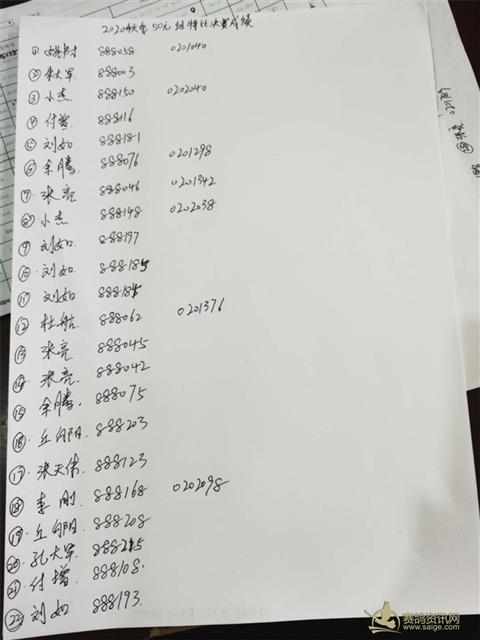 2020秋季50元组特比决赛成绩
① 888058 0201040
② 朱大军 888003
③ 小杰 888150 0202040
④ 付增 888116
⑤ 刘如 888181
⑥ 余腾 888076 0201298
⑦ 张亮 888046 0201342
⑧ 小杰 888148 0202038
⑨ 刘如 888197
⑩ 刘如 888185
⑪ 刘如
⑫ 杜航 888062 0201376
⑬ 张亮 888045
⑭ 张亮 888042
⑮ 余腾 888075
⑯ 丘朝阳 888203
⑰ 张天伟 888123
⑱ 李刚 888168 0202098
⑲ 丘朝阳 888208
⑳ 孔大军
㉑ 付增 888108
㉒ 刘如 888193
赛鸽资讯网
www.saige.com